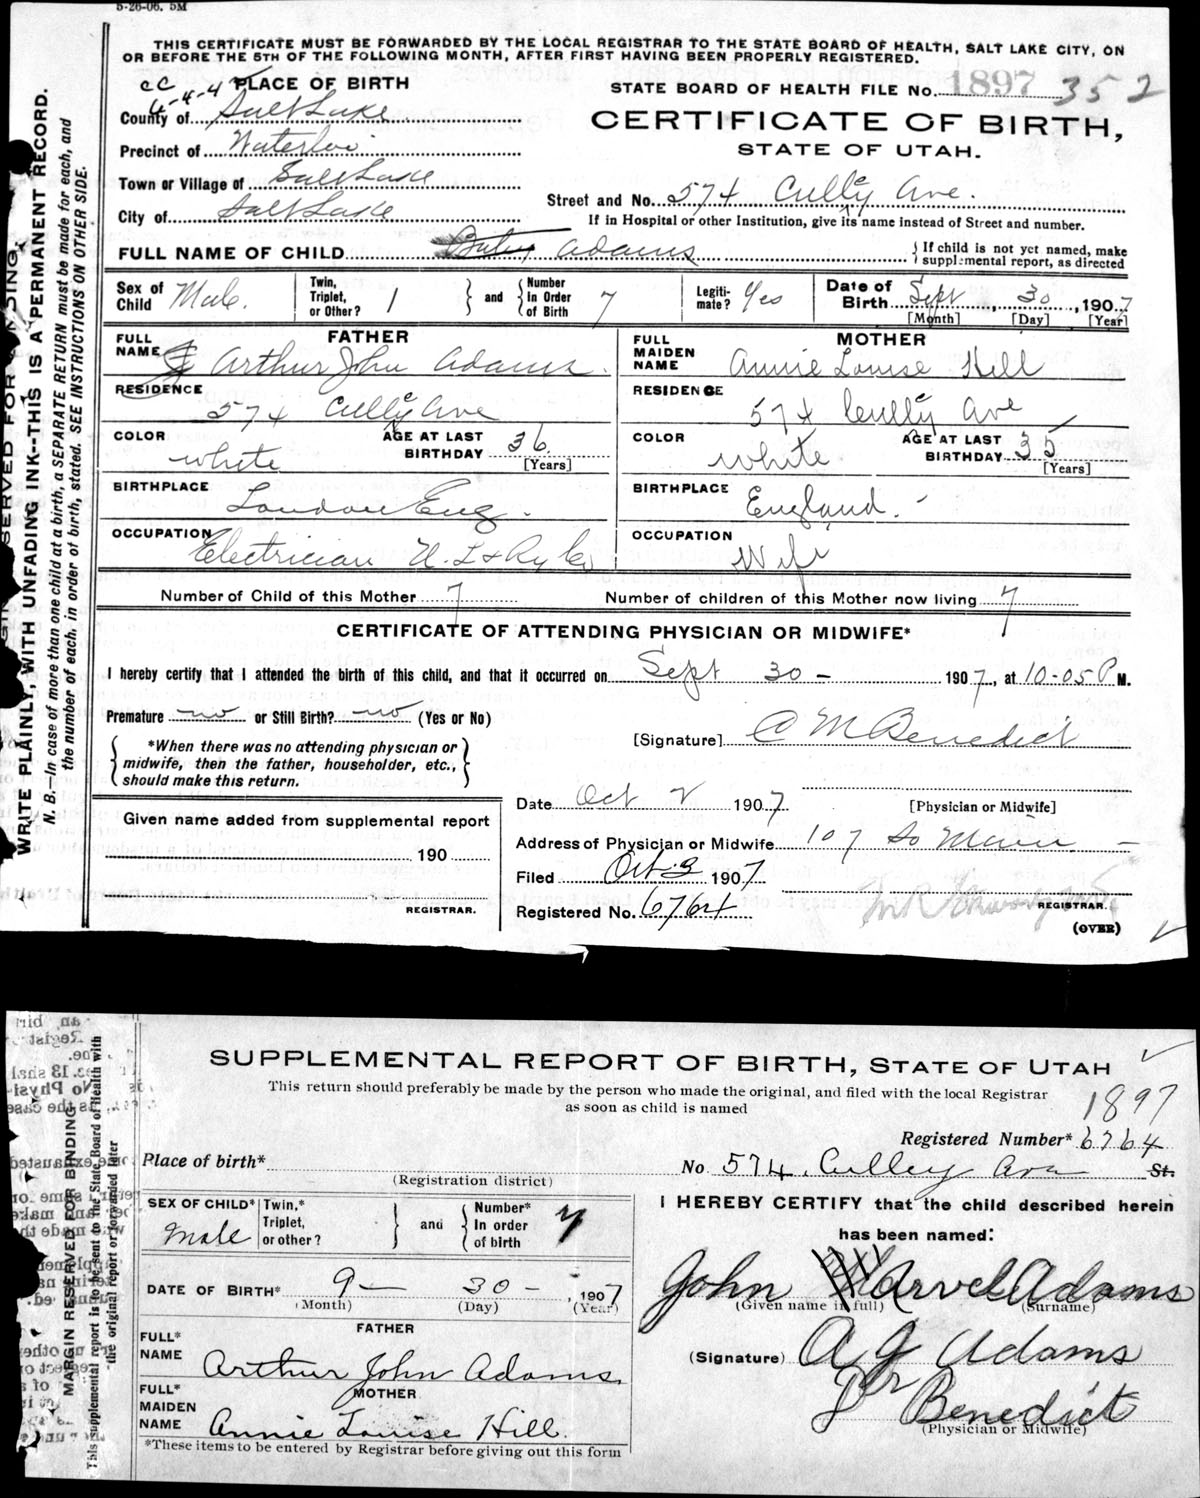 5-26-06. 5M
THIS CERTIFICATE MUST BE FORWARDED BY THE LOCAL REGISTRAR TO THE STATE BOARD OF HEALTH, SALT LAKE CITY, ON
OR BEFORE THE 5TH OF THE FOLLOWING MONTH, AFTER FIRST HAVING BEEN PROPERLY REGISTERED.
PLACE OF BIRTH
STATE BOARD OF HEALTH FILE No. 1897 352
County of Salt Lake
CERTIFICATE OF BIRTH,
STATE OF UTAH.
Precinct of Waterloo
Town or Village of Salt Lake
City of Salt Lake
Street and No. 574 Cully Ave.
If in Hospital or other Institution, give its name instead of Street and number.
FULL NAME OF CHILD Adams
If child is not yet named, make
supplemental report, as directed
Sex of Child Male.
Twin, Triplet, or Other? 1
and
Number In Order of Birth 7
Legiti- mate? Yes
Date of Birth Sept 30, 1907
[Month] [Day] [Year]
FATHER
FULL NAME Arthur John Adams.
RESIDENCE
574 Cully Ave
COLOR white
AGE AT LAST BIRTHDAY 36
[Years]
BIRTHPLACE London Eng.
OCCUPATION Electrician U. L & Ry Co
MOTHER
FULL MAIDEN NAME Annie Louise Hill
RESIDENCE
574 Cully Ave
COLOR white
AGE AT LAST BIRTHDAY 35
[Years]
BIRTHPLACE England. -
OCCUPATION Wife
Number of Child of this Mother 7
Number of children of this Mother now living 7
CERTIFICATE OF ATTENDING PHYSICIAN OR MIDWIFE*
I hereby certify that I attended the birth of this child, and that it occurred on Sept 30 - 1907, at 10-05 P M.
Premature no or Still Birth? no (Yes or No)
[Signature] C M Benedict
*When there was no attending physician or
midwife, then the father, householder, etc.,
should make this return.
Date Oct 2 1907
[Physician or Midwife]
Given name added from supplemental report
190
REGISTRAR.
Address of Physician or Midwife 107 So Main -
Filed Oct 3 1907
Registered No. 6764
REGISTRAR.
(OVER)
WRITE PLAINLY, WITH UNFADING INK--THIS IS A PERMANENT RECORD.
N. B.—In case of more than one child at a birth, a SEPARATE RETURN must be made for each, and
the number of each, in order of birth, stated. SEE INSTRUCTIONS ON OTHER SIDE.
SUPPLEMENTAL REPORT OF BIRTH, STATE OF UTAH
This return should preferably be made by the person who made the original, and filed with the local Registrar
as soon as child is named
1897
Registered Number* 6764
Place of birth*
(Registration district)
No 574. Culley Ave St.
SEX OF CHILD* Male
Twin,* Triplet, or other?
and
Number* In order of birth 7
DATE OF BIRTH* 9 — 30 -, 1907
(Month) (Day) (Year)
FATHER
FULL* NAME Arthur John Adams.
MOTHER
FULL* MAIDEN NAME Annie Louise Hill.
*These items to be entered by Registrar before giving out this form
I HEREBY CERTIFY that the child described herein
has been named:
John Marvel Adams
(Given name in full) (Surname)
(Signature) A J Adams
Dr Benedict
(Physician or Midwife)
MARGIN RESERVED FOR BINDING
This supplemental report is to be sent to the State Board of Health with
the original report or forwarded later